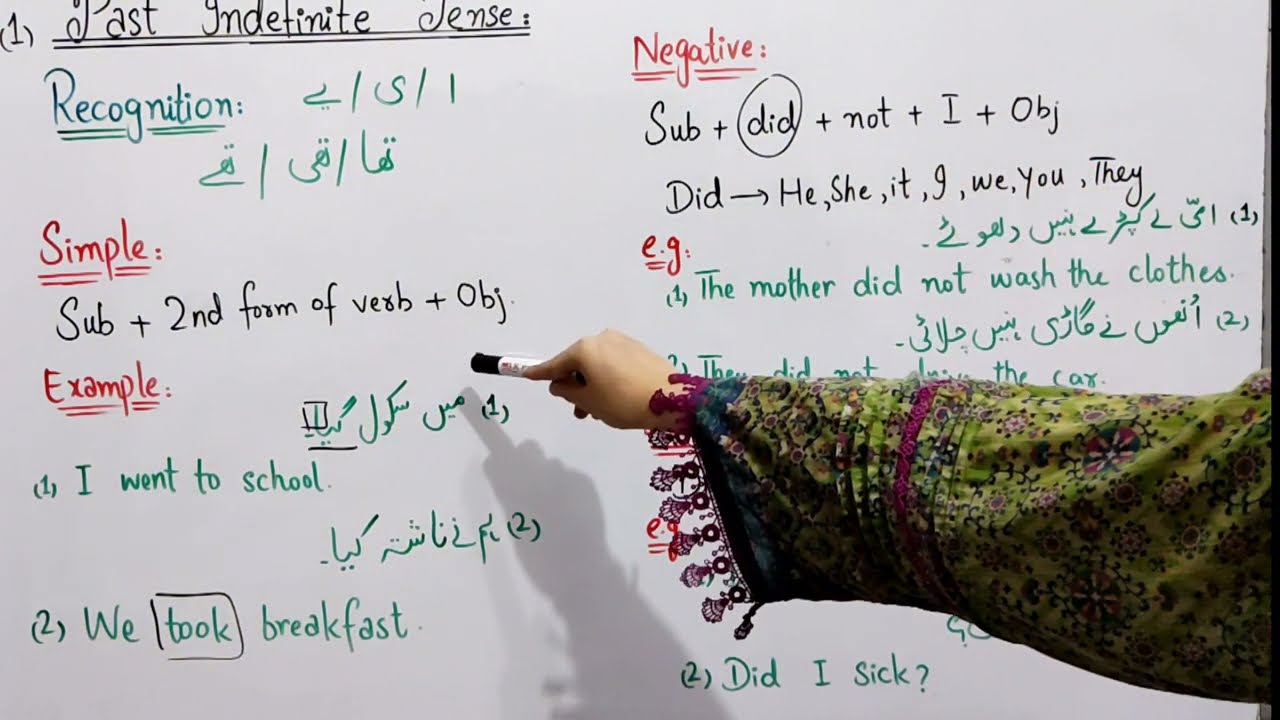 (1) Past Indefinite Tense:
Recognition: ا / ی / ے
تھا / تھی / تھے
Simple:
Sub + 2nd form of verb + Obj.
Example:
(1) میں سکول گیا
(1) I went to school.
(2) ہم نے ناشتہ کیا۔
(2) We took breakfast.
Negative:
Sub + did + not + I + Obj
Did → He, She, it, I, we, You, They
e.g:
(1) امّی نے کپڑے نہیں دھوئے۔
(1) The mother did not wash the clothes.
(2) اُنھوں نے گاڑی نہیں چلائی۔
2) They did not drive the car.
e.g
(2) Did I Sick?